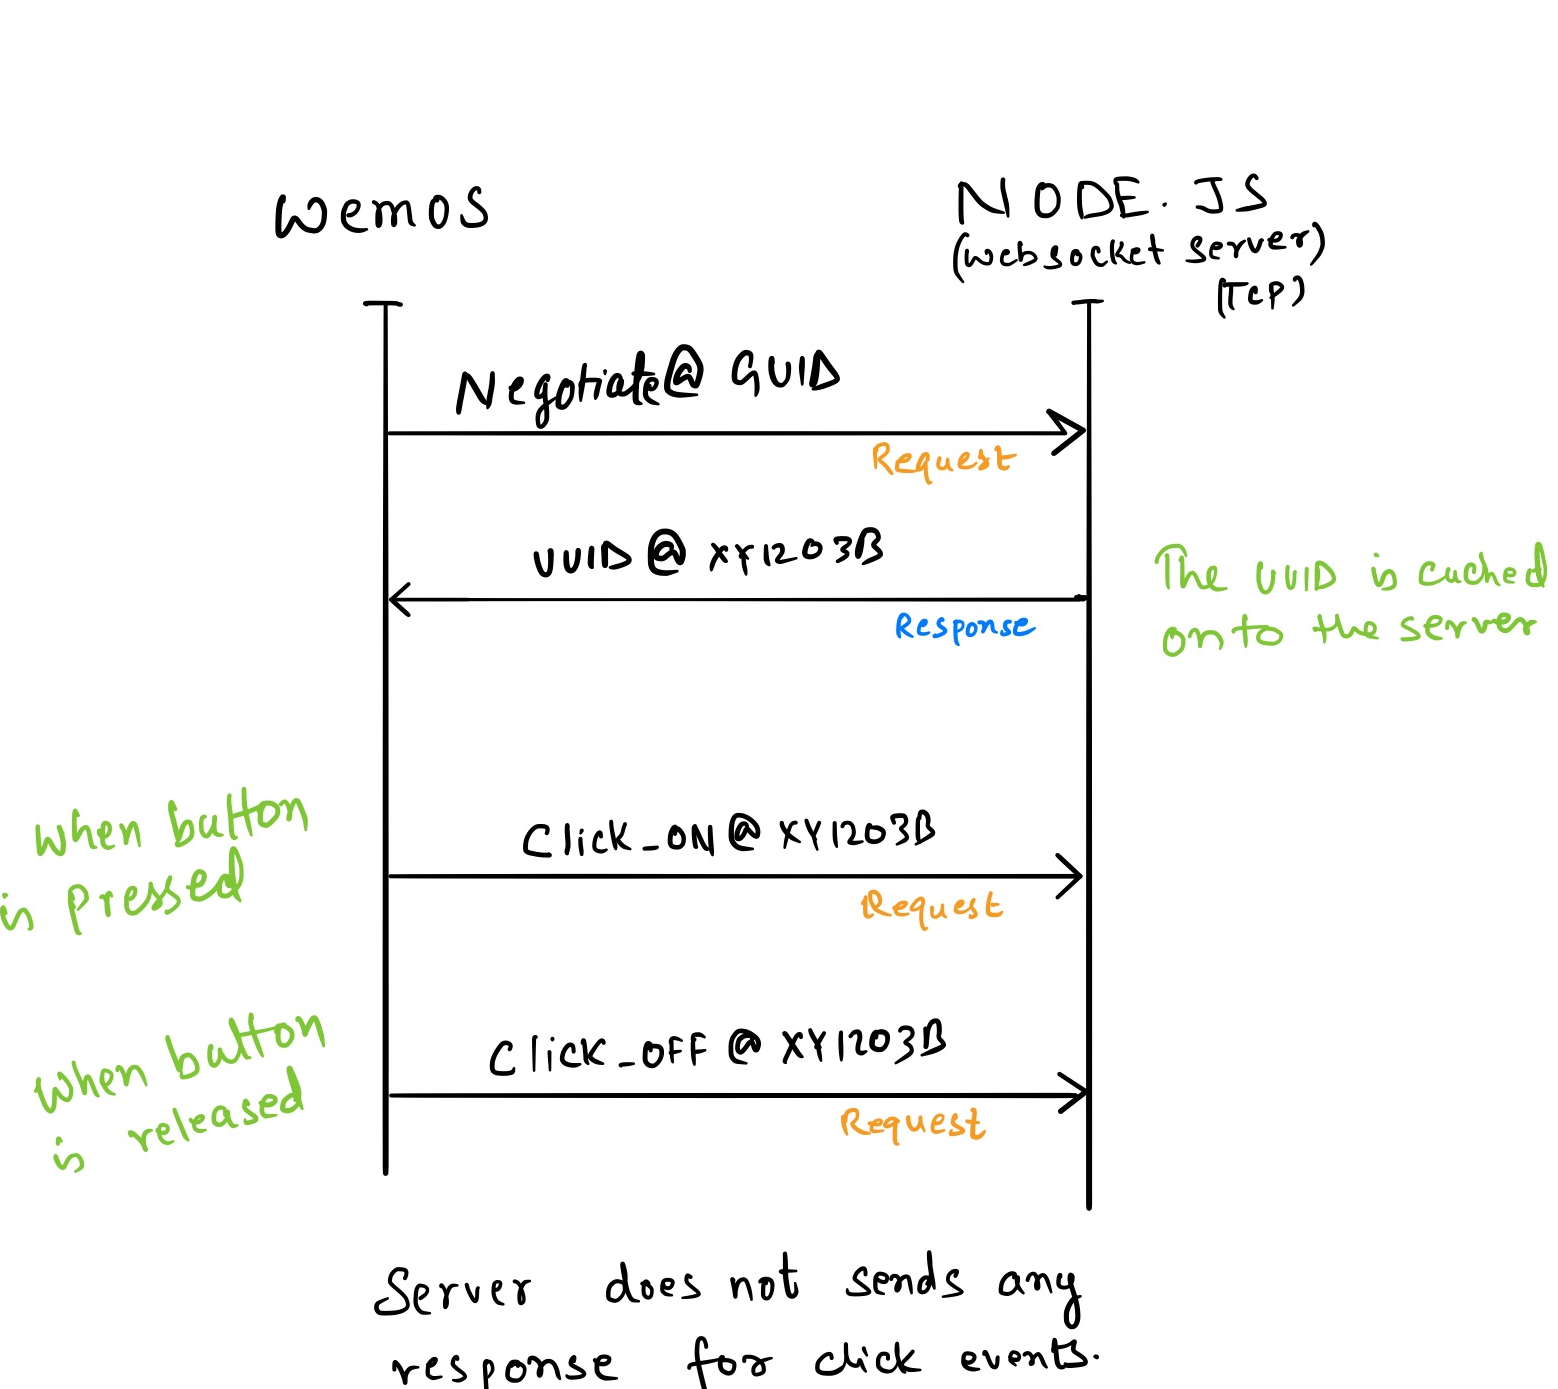 Wemos
NODE.JS
(Websocket server)
(TCP)
Negotiate@ GUID
Request
UUID @ XY1203B
Response
The UUID is cached
onto the server
When button
is Pressed
Click_ON @ XY1203B
Request
When button
is released
Click_OFF @ XY1203B
Request
Server does not sends any
response for click events.